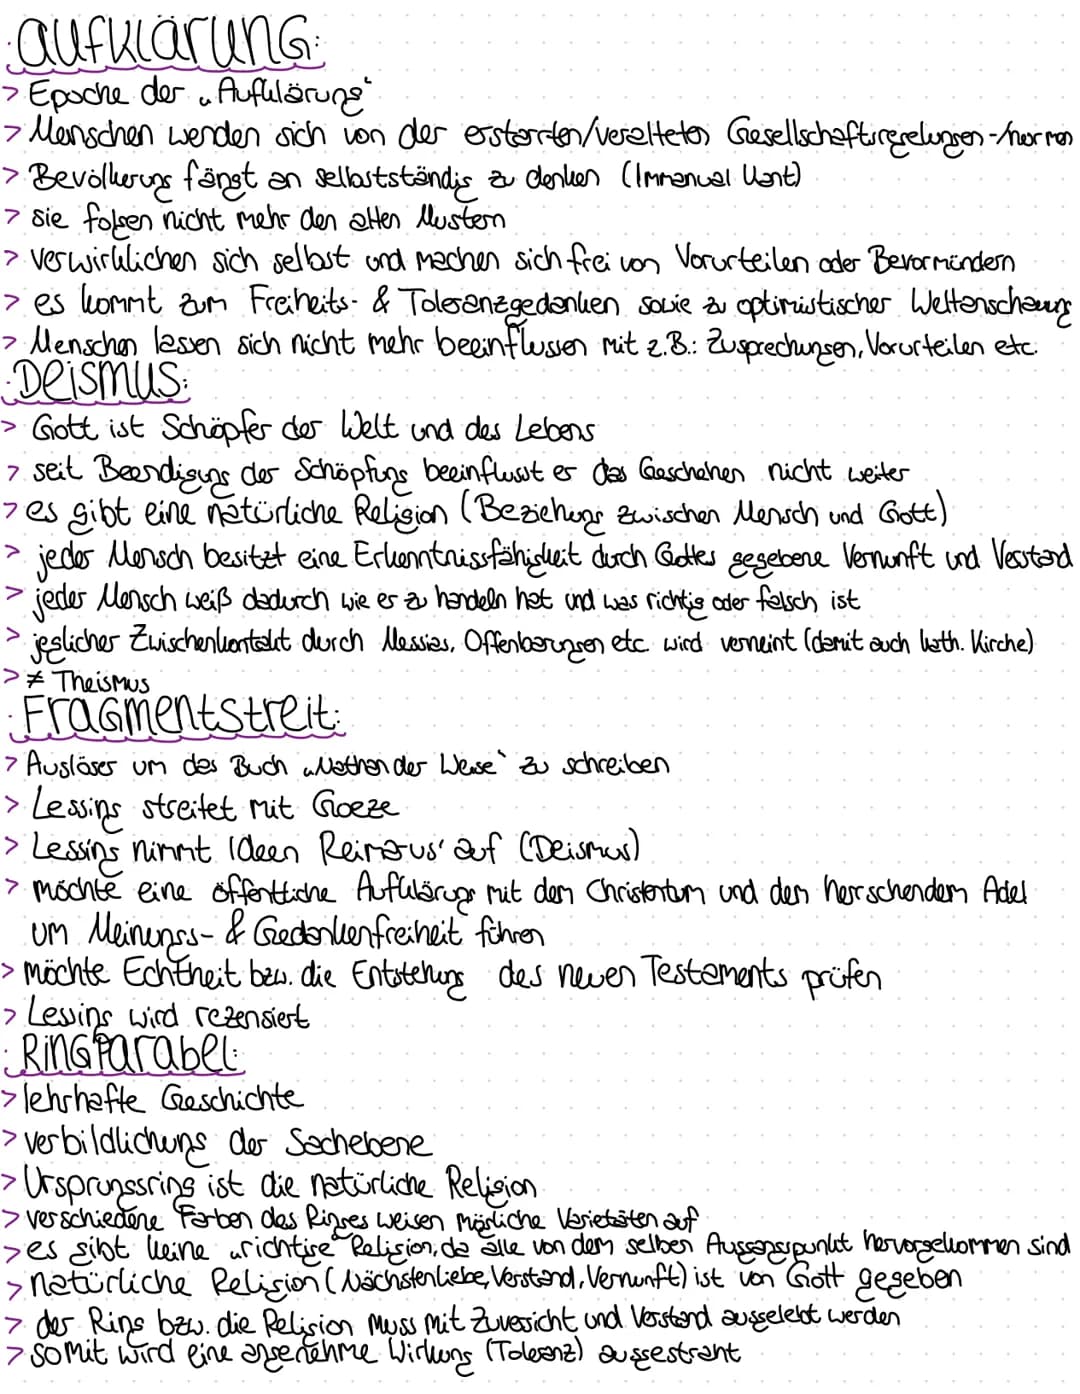 Aufklärung:
> Epoche der „Aufklärung“
> Menschen werden sich von der erstarrten/veralteten Gesellschaftsregelungen -/normen
> Bevölkerung fängt an selbstständig zu denken (Immanuel Kant)
> sie folgen nicht mehr den alten Mustern
> verwirklichen sich selbst und machen sich frei von Vorurteilen oder Bevormündern
> es kommt zum Freiheits- & Toleranzgedanken sowie zu optimistischer Weltanschauung
> Menschen lassen sich nicht mehr beeinflussen mit z.B.: Zusprechungen, Vorurteilen etc.
Deismus:
> Gott ist Schöpfer der Welt und des Lebens
> seit Beendigung der Schöpfung beeinflusst er das Geschehen nicht weiter
> es gibt eine natürliche Religion (Beziehung zwischen Mensch und Gott)
> jeder Mensch besitzt eine Erkenntnissfähigkeit durch Gottes gegebene Vernunft und Verstand
> jeder Mensch weiß dadurch wie er zu handeln hat und was richtig oder falsch ist
> jeglicher Zwischenkontakt durch Messias, Offenbarungen etc. wird verneint (damit auch kath. Kirche)
> ≠ Theismus
Fragmentstreit:
> Auslöser um das Buch „Nathan der Weise“ zu schreiben
> Lessing streitet mit Goeze
> Lessing nimmt Ideen Reimarus' auf (Deismus)
> möchte eine öffentliche Aufklärung mit dem Christentum und den herrschendem Adel
um Meinungs- & Gedankenfreiheit führen
> möchte Echtheit bzw. die Entstehung des neuen Testaments prüfen
> Lessing wird rezensiert
Ringparabel:
> lehrhafte Geschichte
> verbildlichung der Sachebene
> Ursprungsring ist die natürliche Religion
> verschiedene Farben des Ringes weisen mögliche Varietäten auf
> es gibt keine „richtige“ Religion, da alle von dem selben Ausgangspunkt hervorgekommen sind
> natürliche Religion (Nächstenliebe, Verstand, Vernunft) ist von Gott gegeben
> der Ring bzw. die Religion muss mit Zuversicht und Verstand ausgelebt werden
> somit wird eine angenehme Wirkung (Toleranz) ausgestraht